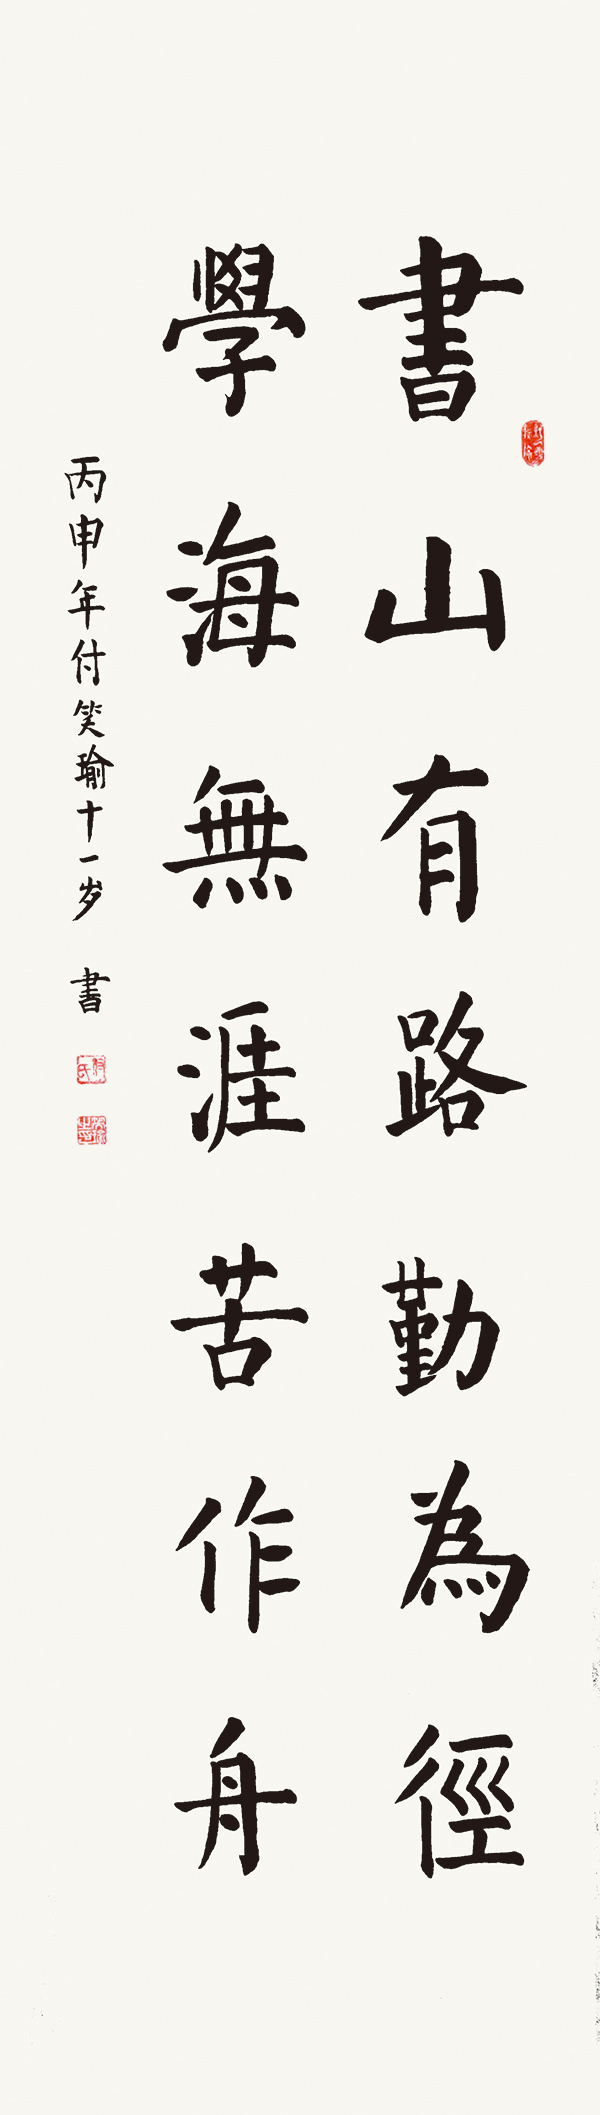 書山有路勤為徑
學海無涯苦作舟
丙申年付笑瑜十一岁 書